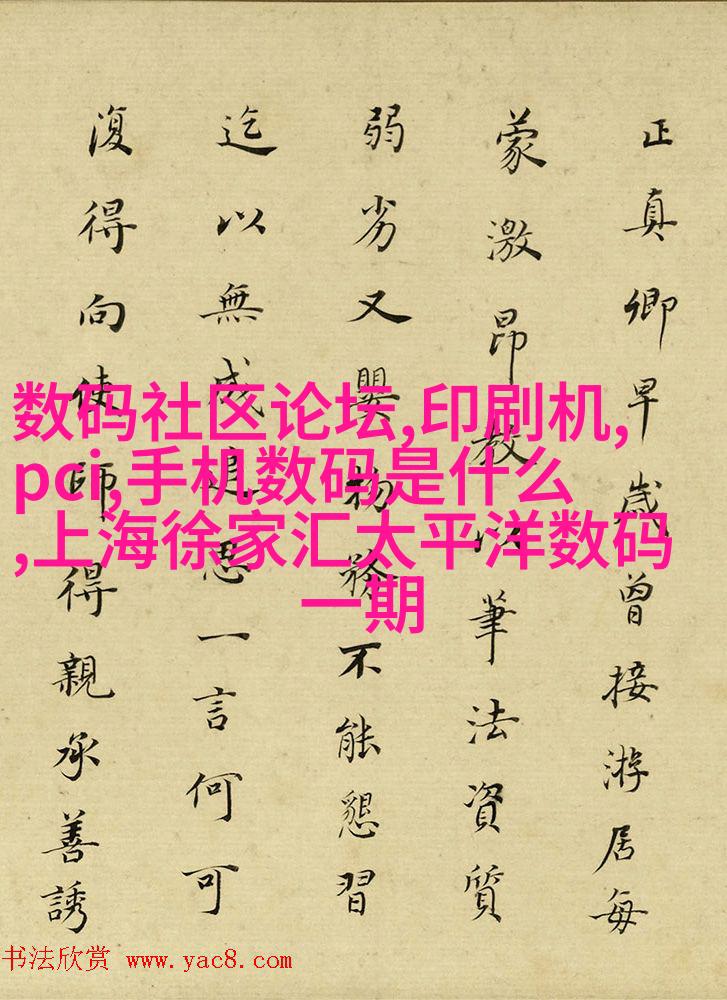 正真卿早歲曾接游居每
蒙激昂教以筆法資質
弱劣又嬰物務不能懇習
迄以無成追思一言何可
復得向使師得親承善誘
数码社区论坛,印刷机,
pci,手机数码是什么
,上海徐家汇太平洋数码
一期
书法欣赏 www.yac8.com